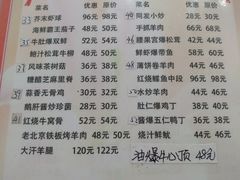 菜名 优惠 原价
33 芥末虾球 96元 98元
海鲜霸王茄子 38元 48元
35 牛肚爆双鲜 54元 58元
鲍汁松茸牛柳 68元 78元
37 风味茶树菇 36元 38元
糖醋芝麻里脊 36元 38元
39 蒜香无骨鸡 32元 36元
鹅肝酱炒珍菌 30元 38元
41 红烧牛窝骨 52元 54元
老北京铁板烤羊肉 48元 50元
大汗羊腿 120元 122元
菜名 优惠 原价
闯发小炒 30元 32元
手抓羊肉 66元 68元
腰果宫爆松茸 34元
鲜虾爆带鱼 58元
48 薄饼卷羊肉 24元
红烧鳗鱼中段 96元
50 水炒羊肉 24元
肚仁爆鸡丁 38元
52 酱爆五仁鸭丁 36元
烧汁鲜鱿 44元
油爆牛心顶 48元